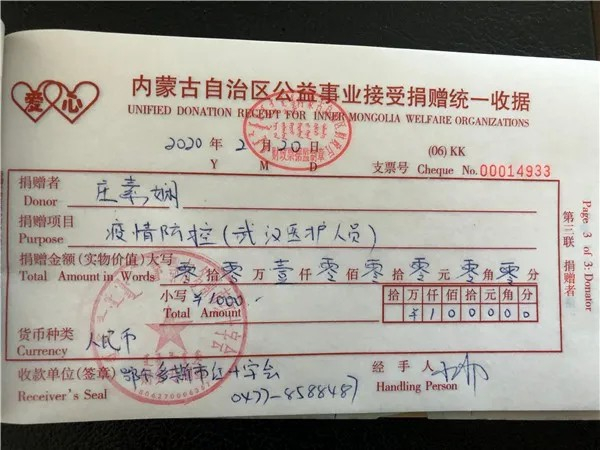 爱心
内蒙古自治区公益事业接受捐赠统一收据
UNIFIED DONATION RECEIPT FOR INNER MONGOLIA WELFARE ORGANIZATIONS
2020 年 2 月 20 日 (06) KK
Y M D 支票号 Cheque No. 00014933
捐赠者
Donor 庄素娴
捐赠项目
Purpose 疫情防控(武汉医护人员)
捐赠金额(实物价值)大写
Total Amount in Words 零拾零万壹仟零佰零拾零元零角零分
小写 ¥1000.
Total Amount
拾万仟佰拾元角分
¥100000
货币种类
Currency 人民币
收款单位(签章) 鄂尔多斯市红十字会
Receiver's Seal 0477-8588487
经手人
Handling Person
第三联 捐赠者
Page 3 of 3: Donator